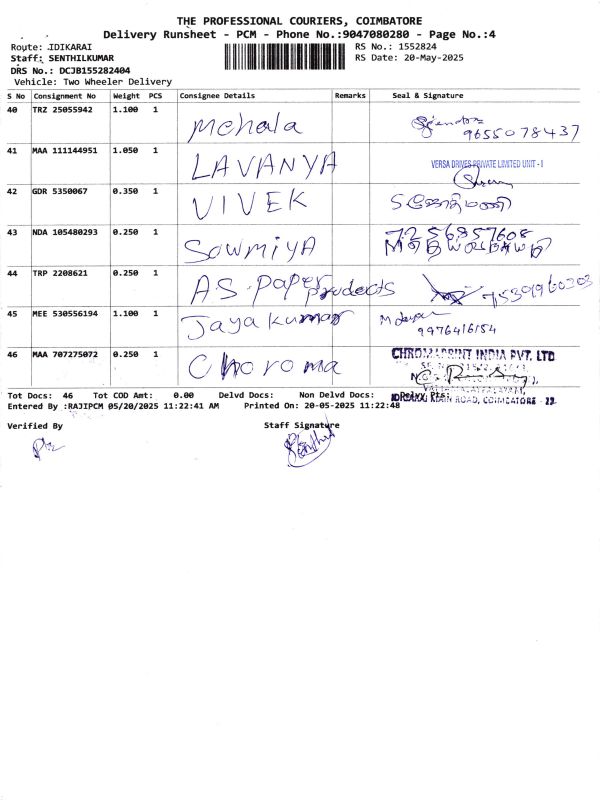 THE PROFESSIONAL COURIERS, COIMBATORE
Delivery Runsheet - PCM - Phone No.:9047080280 - Page No.:4
Route: IDIKARAI RS No.: 1552824
Staff: SENTHILKUMAR RS Date: 20-May-2025
DRS No.: DCJB155282404
Vehicle: Two Wheeler Delivery
S No Consignment No Weight PCS Consignee Details Remarks Seal & Signature
40 TRZ 25055942 1.100 1 Mehala 9655078437
41 MAA 111144951 1.050 1 LAVANYA VERSA DRIVES PRIVATE LIMITED UNIT - I
42 GDR 5350067 0.350 1 VIVEK S ஜோதிமணி
43 NDA 105480293 0.250 1 SOWMIYA 7256857608
44 TRP 2208621 0.250 1 A.S. Paper Products
45 MEE 530556194 1.100 1 Jayakumar 9976416154
46 MAA 707275072 0.250 1 Choroma CHROMAPRINT INDIA PVT. LTD
Tot Docs: 46 Tot COD Amt: 0.00 Delvd Docs: Non Delvd Docs: ROAD, COIMBATORE - 22
Entered By :RAJIPCM 05/20/2025 11:22:41 AM Printed On: 20-05-2025 11:22:48
Verified By Staff Signature